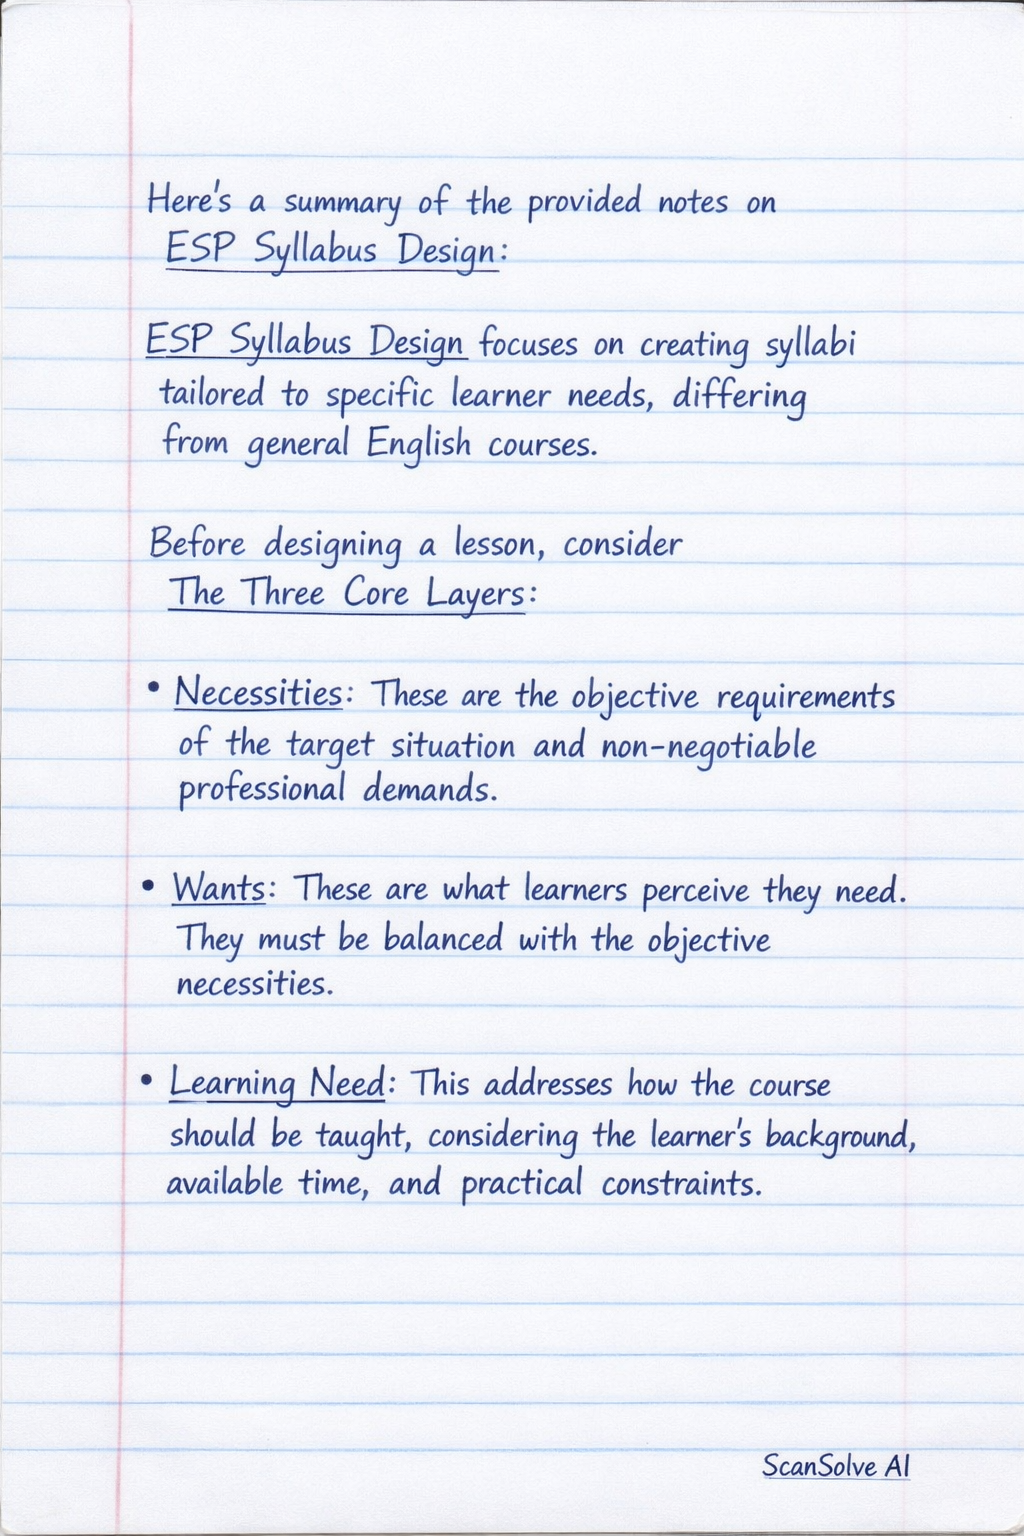 Here's a summary of the provided notes on
ESP Syllabus Design:
ESP Syllabus Design focuses on creating syllabi
tailored to specific learner needs, differing
from general English courses.
Before designing a lesson, consider
The Three Core Layers:
• Necessities: These are the objective requirements
of the target situation and non-negotiable
professional demands.
• Wants: These are what learners perceive they need.
They must be balanced with the objective
necessities.
• Learning Need: This addresses how the course
should be taught, considering the learner's background,
available time, and practical constraints.
ScanSolve AI